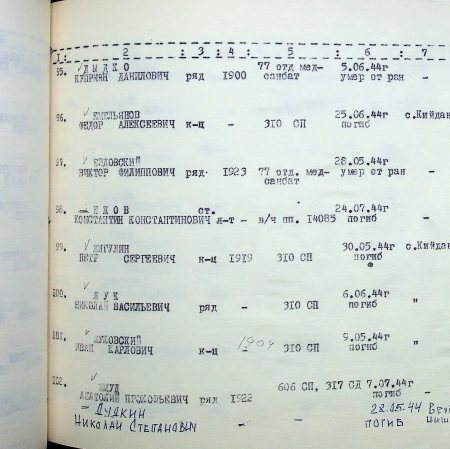 1: 2 : 3 : 4 : 5 : 6 : 7
95. ДЫДКО 77 отд мед- 5.06.44г
КУПРИЯН ДАНИЛОВИЧ ряд 1900 санбат умер от ран -
96. ЕМЕЛЬЯНОВ 25.06.44г с.Кийдан
ФЕДОР АЛЕКСЕЕВИЧ к-ц - 310 СП погиб
97. ЕЗДОВСКИЙ 28.05.44г
ВИКТОР ФИЛИППОВИЧ ряд. 1923 77 отд. мед- умер от ран -
санбат
98. ЕКОВ ст. 24.07.44г
КОНСТАНТИН КОНСТАНТИНОВИЧ л-т - в/ч пп. 14085 погиб -
99. ЖИГУЛИН 30.05.44г с.Кийдан
ПЕТР СЕРГЕЕВИЧ к-ц 1919 310 СП погиб
100. ЖУК 6.06.44г
НИКОЛАЙ ВАСИЛЬЕВИЧ ряд - 310 СП погиб "
101. ЖУКОВСКИЙ 1904 9.05.44г
ИВАН КАРЛОВИЧ к-ц - 310 СП погиб "
102. ЖМУД 606 СП, 317 СД 7.07.44г
АНАТОЛИЙ ПРОКОФЬЕВИЧ ряд 1922 погиб -
- ДУДКИН 28.05.44
НИКОЛАЙ СТЕПАНОВИЧ - - ПОГИБ